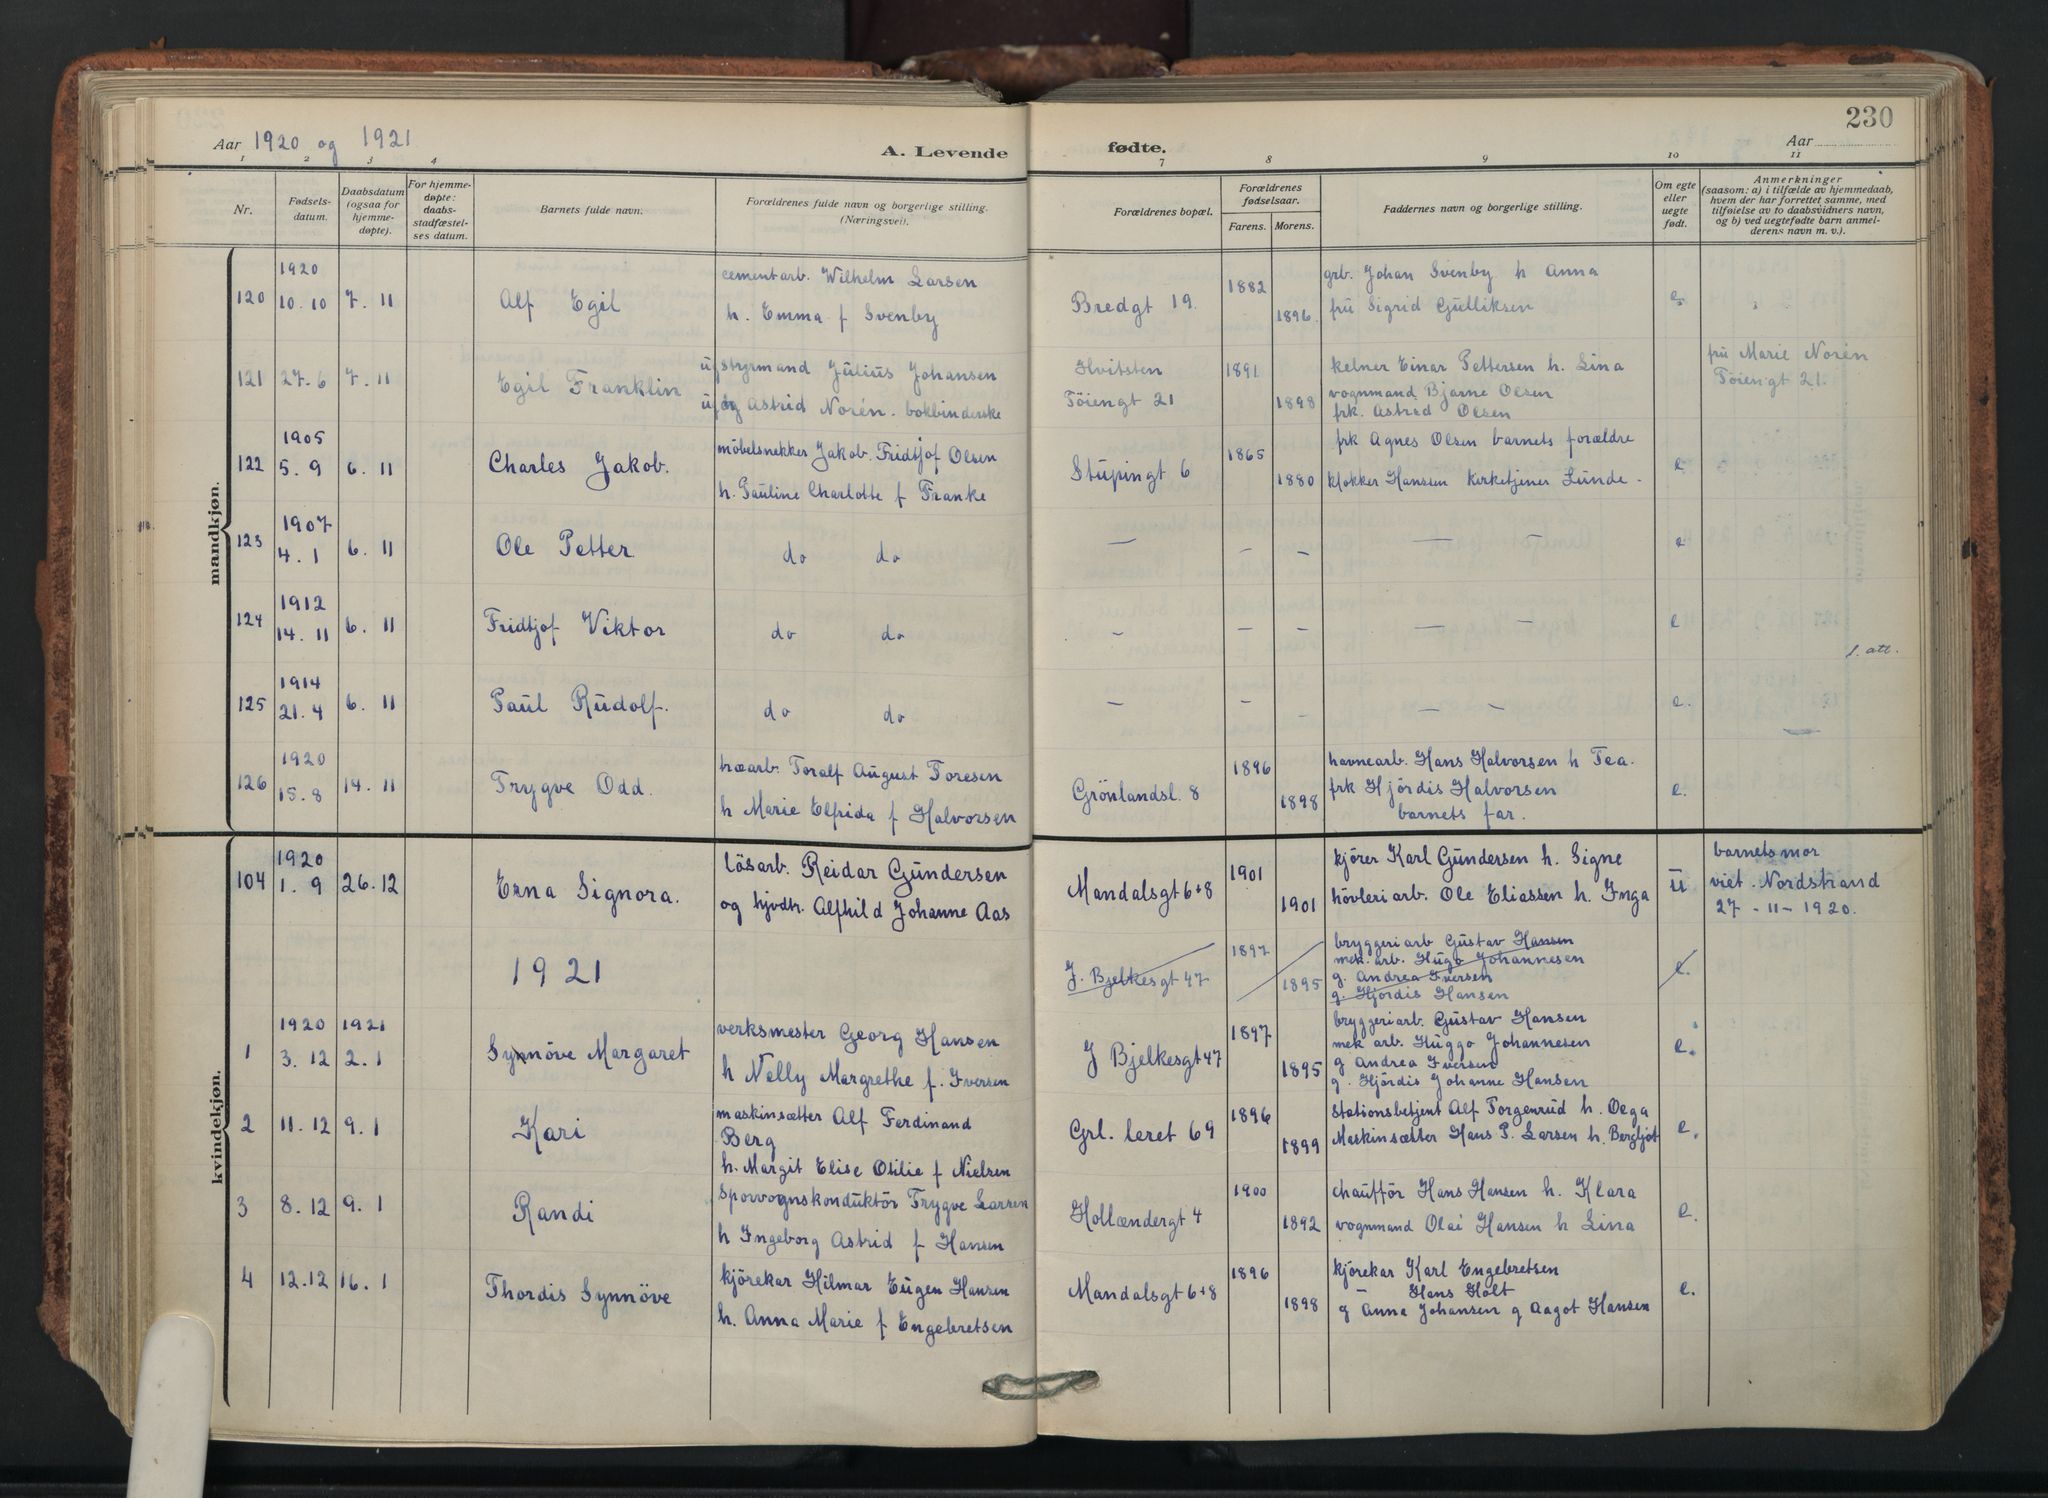 230
Aar 1920 og 1921
A. Levende fødte.
Aar
1 2 3 4 7 8 9 10 11
Nr.
Fødsels-
datum.
Daabsdatum
(ogsaa for
hjemme-
døpte).
For hjemme-
døpte:
daabs-
stadfæstel-
ses datum.
Barnets fulde navn.
Forældrenes fulde navn og borgerlige stilling.
(Næringsvei).
Forældrenes bopæl.
Forældrenes
fødselsaar.
Farens. Morens.
Faddernes navn og borgerlige stilling.
Om egte
eller
uegte
født.
Anmerkninger
(saasom: a) i tilfælde av hjemmedaab,
hvem der har forrettet samme, med
tilføielse av to daabsvidners navn,
og b) ved uegtefødte barn anmel-
derens navn m. v.).
mandkjøn.
1920
120 10.10 7. 11 Alf Egil
cementarb. Wilhelm Larsen
h. Emma f Svenby
Bredgt 19. 1882 1896
grb. Johan Svenby h Anna
fru Sigrid Gulliksen
e
121 27.6 7. 11 Egil Franklin
ug styrmand Julius Johansen
ug Astrid Norén. bokbinderske
Hvitsten
Töiengt 21
1891 1898
kelner Einar Pettersen h. Lina
vognmand Bjarne Olsen
frk. Astrid Olsen
fru Marie Norén
Töiengt 21.
1905
122 5. 9 6. 11 Charles Jakob.
möbelsnekker Jakob Fridtjof Olsen
h. Pauline Charlotte f Franke
Stupingt 6 1865 1880
frk Agnes Olsen barnets forældre
klokker Hanssen kirketjener Lunde -
e
1907
123 4. 1 6. 11 Ole Petter
do do
— — — — — e
1912
124 14. 11 6. 11 Fridtjof Viktor
do do
- — — — — e
l. att.
1914
125 21. 4 6. 11 Paul Rudolf.
do do
— — — — — e.
1920
126 15. 8 14. 11 Trygve Odd.
træarb. Toralf August Toresen
h Marie Elfrida f Halvorsen
Grönlandsl. 8 1896 1898
havnearb. Hans Halvorsen h Tea.
frk Hjördis Halvorsen
barnets far.
e.
kvindekjøn.
1920
104 1. 9 26. 12 Erna Signora.
lösarb. Reidar Gundersen
og hjvdtr. Alfhild Johanne Aas
Mandalsgt 6+8 1901 1901
kjörer Karl Gundersen h. Signe
hövleriarb. Ole Eliassen h. Inga
u
barnets mor
viet. Nordstrand
27 - 11 - 1920.
1921
J. Bjelkesgt 47 1897 1895
bryggeriarb Gustav Hansen
mek. arb. Hugo Johannesen
g. Andrea Iversen
g. Hjördis Hansen
e.
1920 1921
1 3. 12 2. 1 Synnöve Margaret
verksmester Georg Hansen
h Nelly Margrethe f. Iversen
J Bjelkesgt 47 1897 1895
bryggeriarb. Gustav Hansen
mek arb. Huggo Johannesen
g Andrea Iversen
g. Hjördis Johanne Hansen
e.
2 11. 12 9. 1 Kari
maskinsætter Alf Ferdinand
Berg
h. Margit Elise Otilie f Nielsen
Grl. leret 69 1896 1899
Stationsbetjent Alf Torgenrud h. Oega
Maskinsætter Hans P. Larsen h. Bergljot
e.
3 8. 12 9. 1 Randi
Sporvognskonduktör Trygve Larsen
h Ingeborg Astrid f Hansen
Hollændergt 4 1900 1892
chaufför Hans Hansen h. Klara
vognmand Olai Hansen h Lina
e.
4 12. 12 16. 1 Thordis Synnöve
kjörekar Hilmar Eugen Hansen
h. Anna Marie f Engebretsen
Mandalsgt 6+8 1896 1898
kjörekar Karl Engebretsen
— Hans Holt
g Anna Johansen g Aagot Hansen
e.